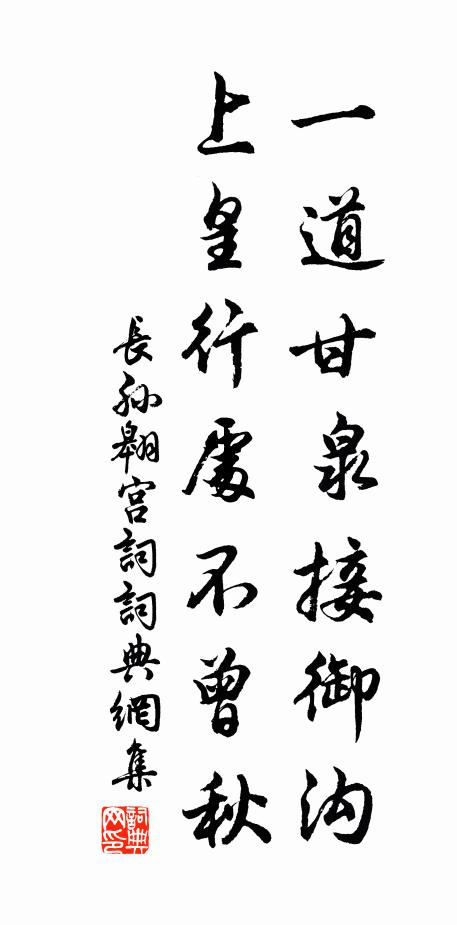 一道甘泉接御沟
上皇行處不曾秋
長孙翱宫詞詞典網集
詞典网印